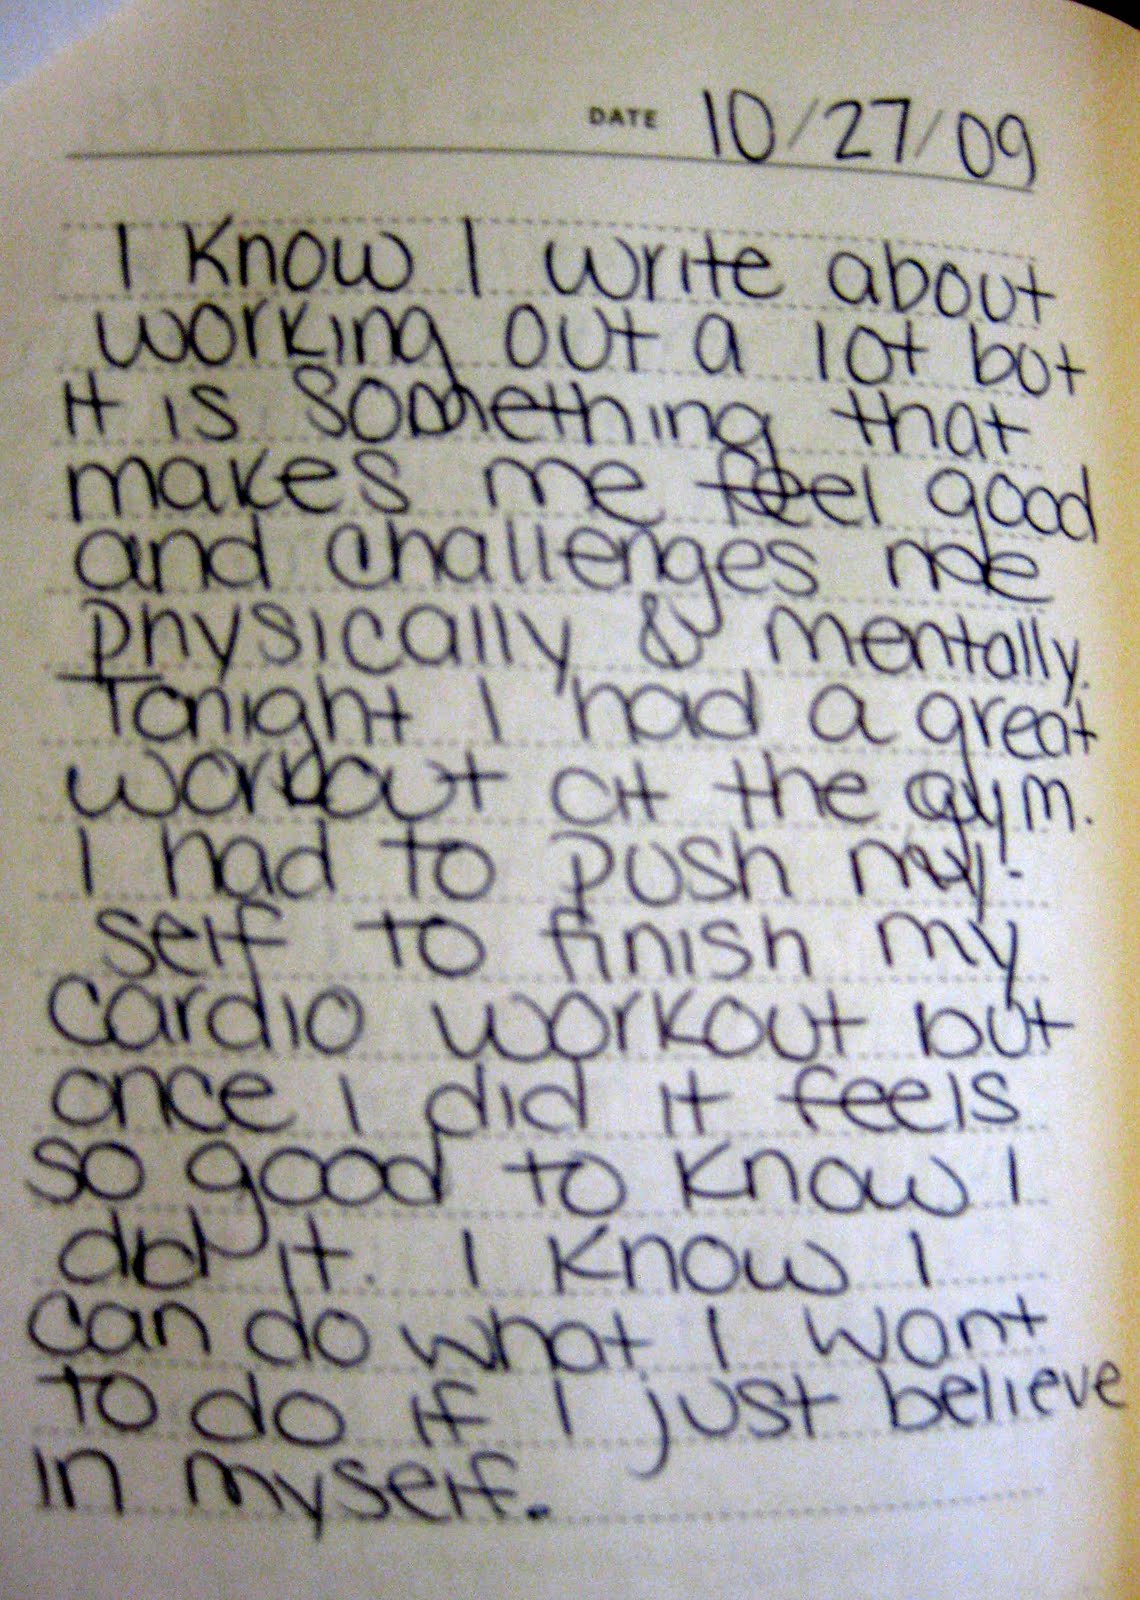 DATE 10/27/09
I know I write about
working out a lot but
it is something that
makes me feel good
and challenges me
physically & mentally.
Tonight I had a great
workout at the gym.
I had to push my-
self to finish my
cardio workout but
once I did it feels
so good to know I
did it. I know I
can do what I want
to do if I just believe
in myself.